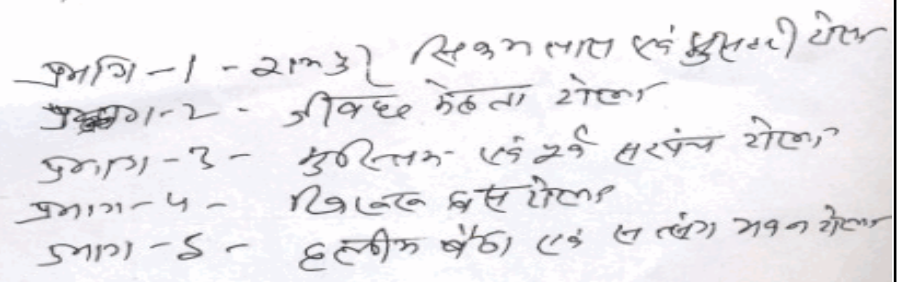 प्रभाग -1 - सिकम लाल एवं मुसहरी टोला
प्रभाग -2 - जीवछ मेहता टोला
प्रभाग -3 - मुस्लिम एवं पूर्व सरपंच टोला,
प्रभाग -4 - टोला
प्रभाग -5 - हलीम बैठा एवं सत्संग भवन टोला